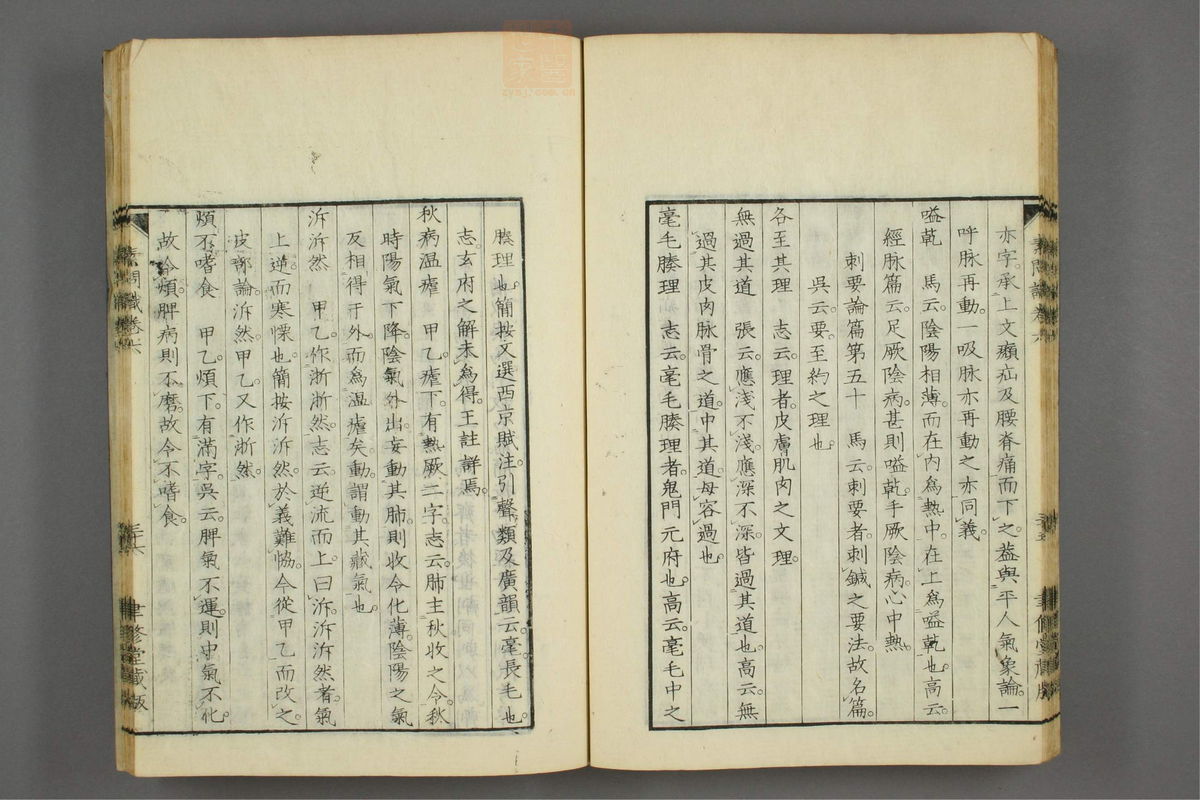 亦字。承上文癲疝及腰脊痛而下之。蓋與平人氣象論。一
呼脉再動。一吸脉亦再動之亦同義。
嗌乾　馬云。陰陽相薄。而在內爲熱中。在上爲嗌乾也。高云。
經脉篇云。足厥陰病。甚則嗌乾。手厥陰病。心中熱。
刺要論篇第五十　馬云。刺要者。刺鍼之要法。故名篇。
吳云。要。至約之理也。
各至其理　志云。理者。皮膚肌肉之文理。
無過其道　張云。應淺不淺。應深不深。皆過其道也。高云。無
過其皮肉脉骨之道。中其道。毋容過也。
毫毛腠理　志云。毫毛腠理者。鬼門元府也。高云。毫毛中之
素問識卷六
三十五
聿修堂藏版
腠理也。簡按文選西京賦注。引聲類及廣韻云。毫。長毛也。
志。玄府之解未爲得。王註詳焉。
秋病温瘧　甲乙。瘧下。有熱厥二字。志云。肺主秋收之令。秋
時陽氣下降。陰氣外出。妄動其肺。則收令化薄。陰陽之氣
反相得于外。而爲温瘧矣。動。謂動其藏氣也。
泝泝然　甲乙。作淅淅然。志云。逆流而上曰泝。泝泝然者。氣
上逆而寒慄也。簡按泝泝然。於義難恊。今從甲乙而改之。
皮部論泝然。甲乙又作淅然。
煩不嗜食　甲乙。煩下。有滿字。吳云。脾氣不運。則中氣不化。
故令煩。脾病則不磨。故令不嗜食。
素問識卷六
三十六
聿修堂藏版
zysj.com.cn